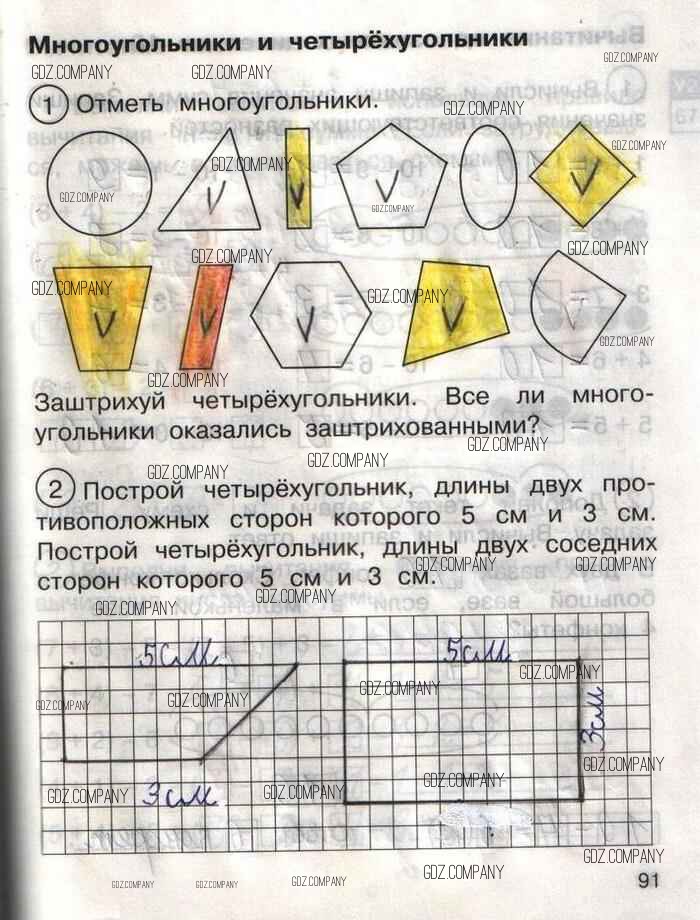 Многоугольники и четырёхугольники
GDZ.COMPANY GDZ.COMPANY GDZ.COMPANY
1 Отметь многоугольники.
GDZ.COMPANY
GDZ.COMPANY GDZ.COMPANY
GDZ.COMPANY GDZ.COMPANY
GDZ.COMPANY GDZ.COMPANY
GDZ.COMPANY GDZ.COMPANY
GDZ.COMPANY
GDZ.COMPANY
Заштрихуй четырёхугольники. Все ли много-
угольники оказались заштрихованными?
GDZ.COMPANY
GDZ.COMPANY GDZ.COMPANY
2 Построй четырёхугольник, длины двух про-
тивоположных сторон которого 5 см и 3 см.
Построй четырёхугольник, длины двух соседних
GDZ.COMPANY GDZ.COMPANY
сторон которого 5 см и 3 см.
GDZ.COMPANY GDZ.COMPANY
5см 5см
GDZ.COMPANY
GDZ.COMPANY GDZ.COMPANY GDZ.COMPANY
3см
GDZ.COMPANY
GDZ.COMPANY
3см
GDZ.COMPANY GDZ.COMPANY
GDZ.COMPANY GDZ.COMPANY
91
GDZ.COMPANY GDZ.COMPANY GDZ.COMPANY